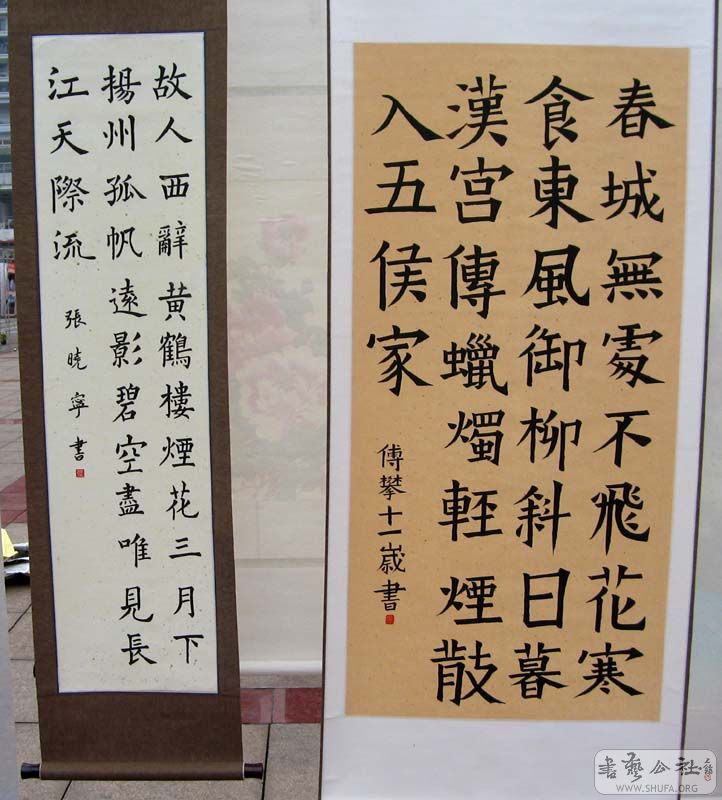 故人西辭黄鶴樓煙花三月下
揚州孤帆遠影碧空盡唯見長
江天際流
張曉寧書
春城無處不飛花寒
食東風御柳斜日暮
漢宫傳蠟燭輕煙散
入五侯家
傅攀十一歲書
書藝公社
WWW.SHUFA.ORG